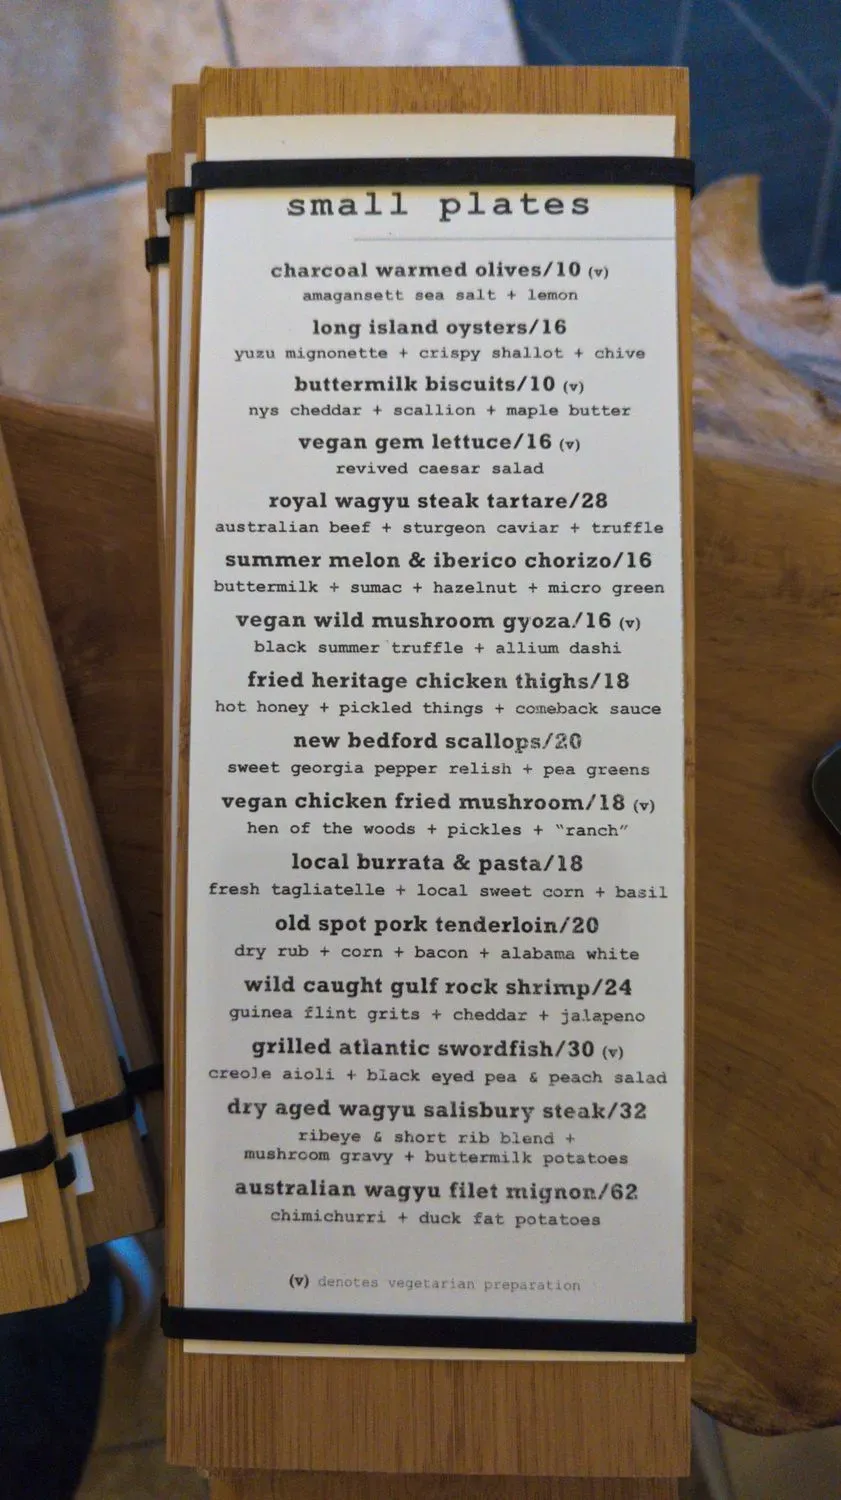 small plates
charcoal warmed olives/10 (v)
amagansett sea salt + lemon
long island oysters/16
yuzu mignonette + crispy shallot + chive
buttermilk biscuits/10 (v)
nys cheddar + scallion + maple butter
vegan gem lettuce/16 (v)
revived caesar salad
royal wagyu steak tartare/28
australian beef + sturgeon caviar + truffle
summer melon & iberico chorizo/16
buttermilk + sumac + hazelnut + micro green
vegan wild mushroom gyoza/16 (v)
black summer truffle + allium dashi
fried heritage chicken thighs/18
hot honey + pickled things + comeback sauce
new bedford scallops/20
sweet georgia pepper relish + pea greens
vegan chicken fried mushroom/18 (v)
hen of the woods + pickles + "ranch"
local burrata & pasta/18
fresh tagliatelle + local sweet corn + basil
old spot pork tenderloin/20
dry rub + corn + bacon + alabama white
wild caught gulf rock shrimp/24
guinea flint grits + cheddar + jalapeno
grilled atlantic swordfish/30 (v)
creole aioli + black eyed pea & peach salad
dry aged wagyu salisbury steak/32
ribeye & short rib blend +
mushroom gravy + buttermilk potatoes
australian wagyu filet mignon/62
chimichurri + duck fat potatoes
(v) denotes vegetarian preparation